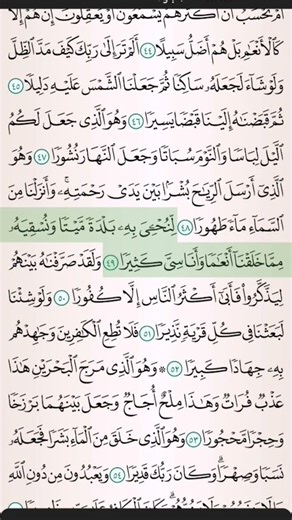 أَمْ تَحْسَبُ أَنَّ أَكْثَرَهُمْ يَسْمَعُونَ أَوْ يَعْقِلُونَ إِنْ هُمْ إِلَّا
كَالْأَنْعَٰمِ بَلْ هُمْ أَضَلُّ سَبِيلًا ٤٤ أَلَمْ تَرَ إِلَىٰ رَبِّكَ كَيْفَ مَدَّ ٱلظِّلَّ
وَلَوْ شَآءَ لَجَعَلَهُۥ سَاكِنًا ثُمَّ جَعَلْنَا ٱلشَّمْسَ عَلَيْهِ دَلِيلًا ٤٥
ثُمَّ قَبَضْنَٰهُ إِلَيْنَا قَبْضًا يَسِيرًا ٤٦ وَهُوَ ٱلَّذِى جَعَلَ لَكُمُ
ٱلَّيْلَ لِبَاسًا وَٱلنَّوْمَ سُبَاتًا وَجَعَلَ ٱلنَّهَارَ نُشُورًا ٤٧ وَهُوَ
ٱلَّذِىٓ أَرْسَلَ ٱلرِّيَٰحَ بُشْرًۢا بَيْنَ يَدَىْ رَحْمَتِهِۦ ۚ وَأَنزَلْنَا مِنَ
ٱلسَّمَآءِ مَآءً طَهُورًا ٤٨ لِّنُحْۦِىَ بِهِۦ بَلْدَةً مَّيْتًا وَنُسْقِيَهُۥ
مِمَّا خَلَقْنَآ أَنْعَٰمًا وَأَنَاسِىَّ كَثِيرًا ٤٩ وَلَقَدْ صَرَّفْنَٰهُ بَيْنَهُمْ
لِيَذَّكَّرُوا۟ فَأَبَىٰٓ أَكْثَرُ ٱلنَّاسِ إِلَّا كُفُورًا ٥٠ وَلَوْ شِئْنَا
لَبَعَثْنَا فِى كُلِّ قَرْيَةٍ نَّذِيرًا ٥١ فَلَا تُطِعِ ٱلْكَٰفِرِينَ وَجَٰهِدْهُم
بِهِۦ جِهَادًا كَبِيرًا ٥٢ ۞ وَهُوَ ٱلَّذِى مَرَجَ ٱلْبَحْرَيْنِ هَٰذَا
عَذْبٌ فُرَاتٌ وَهَٰذَا مِلْحٌ أُجَاجٌ وَجَعَلَ بَيْنَهُمَا بَرْزَخًا
وَحِجْرًا مَّحْجُورًا ٥٣ وَهُوَ ٱلَّذِى خَلَقَ مِنَ ٱلْمَآءِ بَشَرًا فَجَعَلَهُۥ
نَسَبًا وَصِهْرًا ۗ وَكَانَ رَبُّكَ قَدِيرًا ٥٤ وَيَعْبُدُونَ مِن دُونِ ٱللَّهِ